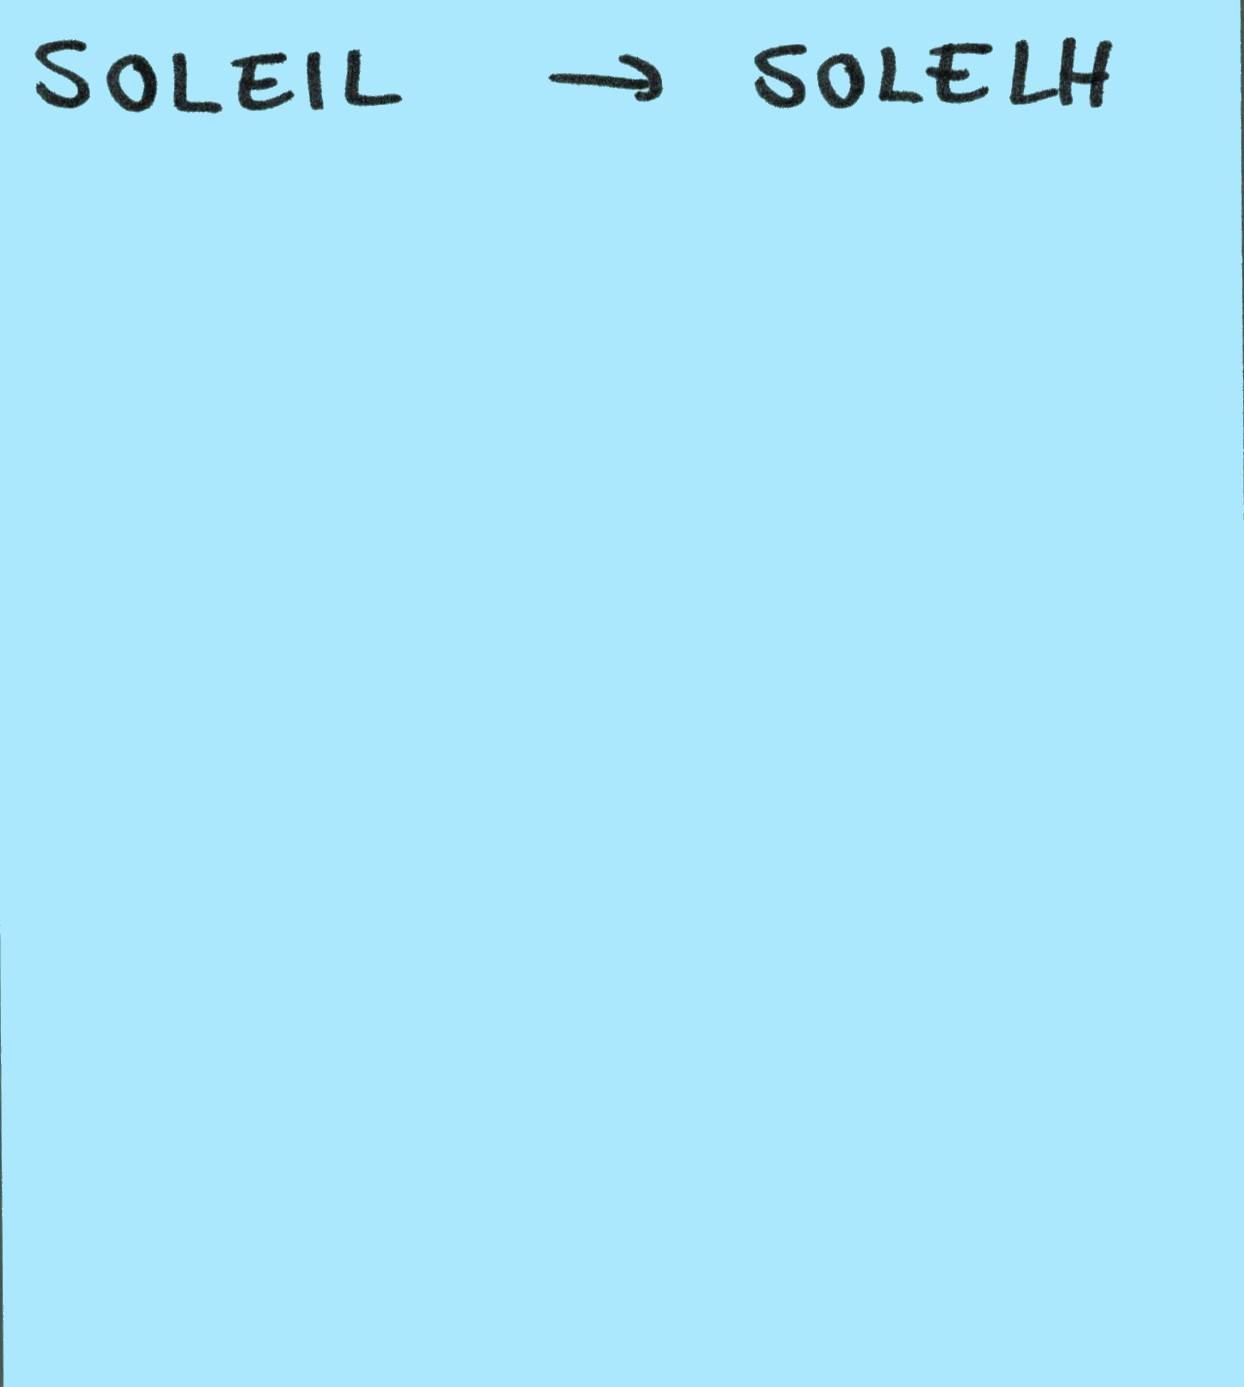 SOLEIL → SOLELH